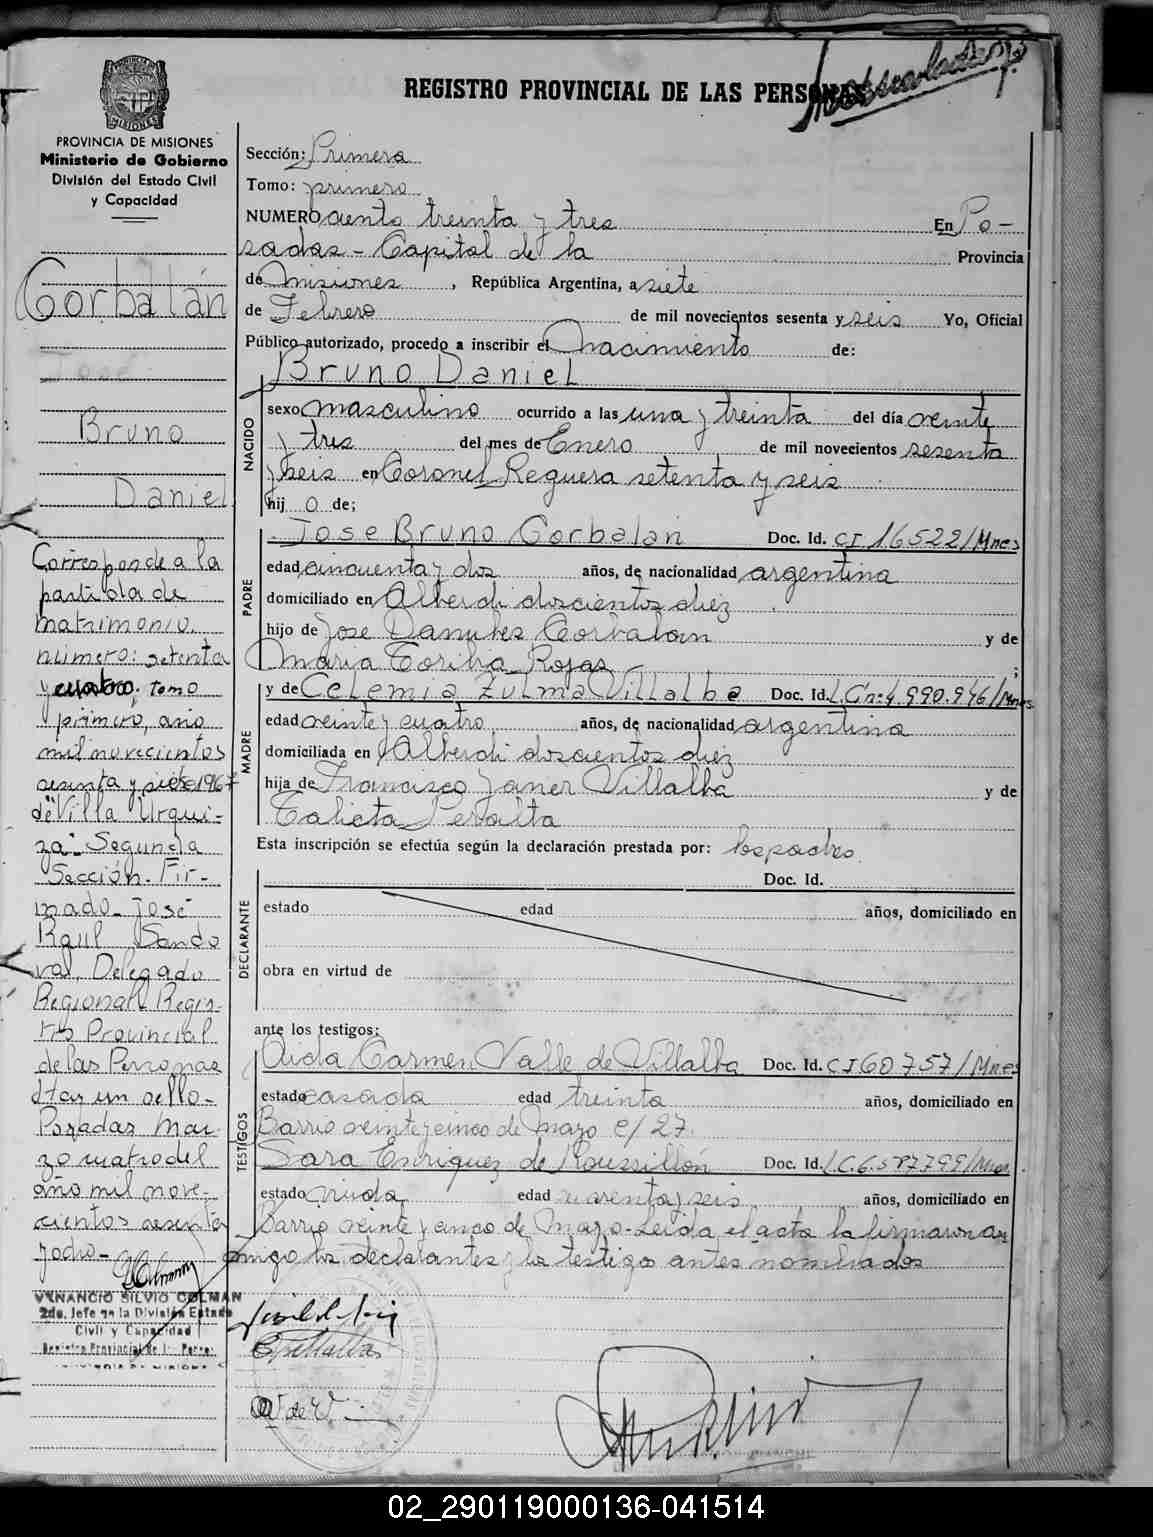 REGISTRO PROVINCIAL DE LAS PERSONAS
PROVINCIA DE MISIONES
Ministerio de Gobierno
División del Estado Civil
y Capacidad
Gorbalán
José
Bruno
Daniel
Corresponde a la
partida de
matrimonio.
número: setenta
y cuatro. tomo
primero, año
mil novecientos
sesenta y siete 1967
de Villa Urqui-
za - Segunda
Sección - Fir-
mado - José
Raúl Sando
val, Delegado
Regional Regis-
tro Provincial
de las Personas
Hay un sello -
Posadas Mar-
zo cuatro del
año mil nove-
cientos sesenta
y ocho -
VENANCIO SILVIO COLMAN
2do. Jefe de la División Estado
Civil y Capacidad
Registro Provincial de las Perso
Sección: Primera
Tomo: primero
NUMERO ciento treinta y tres En Po-
sadas - Capital de la Provincia
de Misiones , República Argentina, a siete
de Febrero de mil novecientos sesenta y seis Yo, Oficial
Público autorizado, procedo a inscribir el Nacimiento de:
Bruno Daniel
NACIDO
sexo masculino ocurrido a las una y treinta del día veinte
y tres del mes de Enero de mil novecientos sesenta
y seis en Coronel Reguera setenta y seis
hij o de;
PADRE
José Bruno Gorbalan Doc. Id. CI 16522/Mnes
edad cincuenta y dos años, de nacionalidad argentina
domiciliado en Alberdi doscientos diez
hijo de José Gorbalan y de
Maria Toriba Rojas ;
MADRE
y de Celemia Zulma Villalba Doc. Id. L.C. nº: 4.990.946/Mnes
edad veinte y cuatro años, de nacionalidad argentina
domiciliada en Alberdi doscientos diez
hija de Francisco Janer Villalba y de
Peralta
Esta inscripción se efectúa según la declaración prestada por: los padres
DECLARANTE
Doc. Id.
estado edad años, domiciliado en
obra en virtud de
ante los testigos:
TESTIGOS
Aida Carmen Valle de Villalba Doc. Id. CI 60757/Mnes
estado casada edad treinta años, domiciliado en
Barrio veinte y cinco de Mayo C/ 27.
Sara Enriquez de Roussillón Doc. Id. L.C. 6.587799/Mnes
estado viuda edad cuarenta y seis años, domiciliado en
Barrio veinte y cinco de Mayo - Leída el acta la firmaron con
migo los declarantes y los testigos antes nombrados
02_290119000136-041514